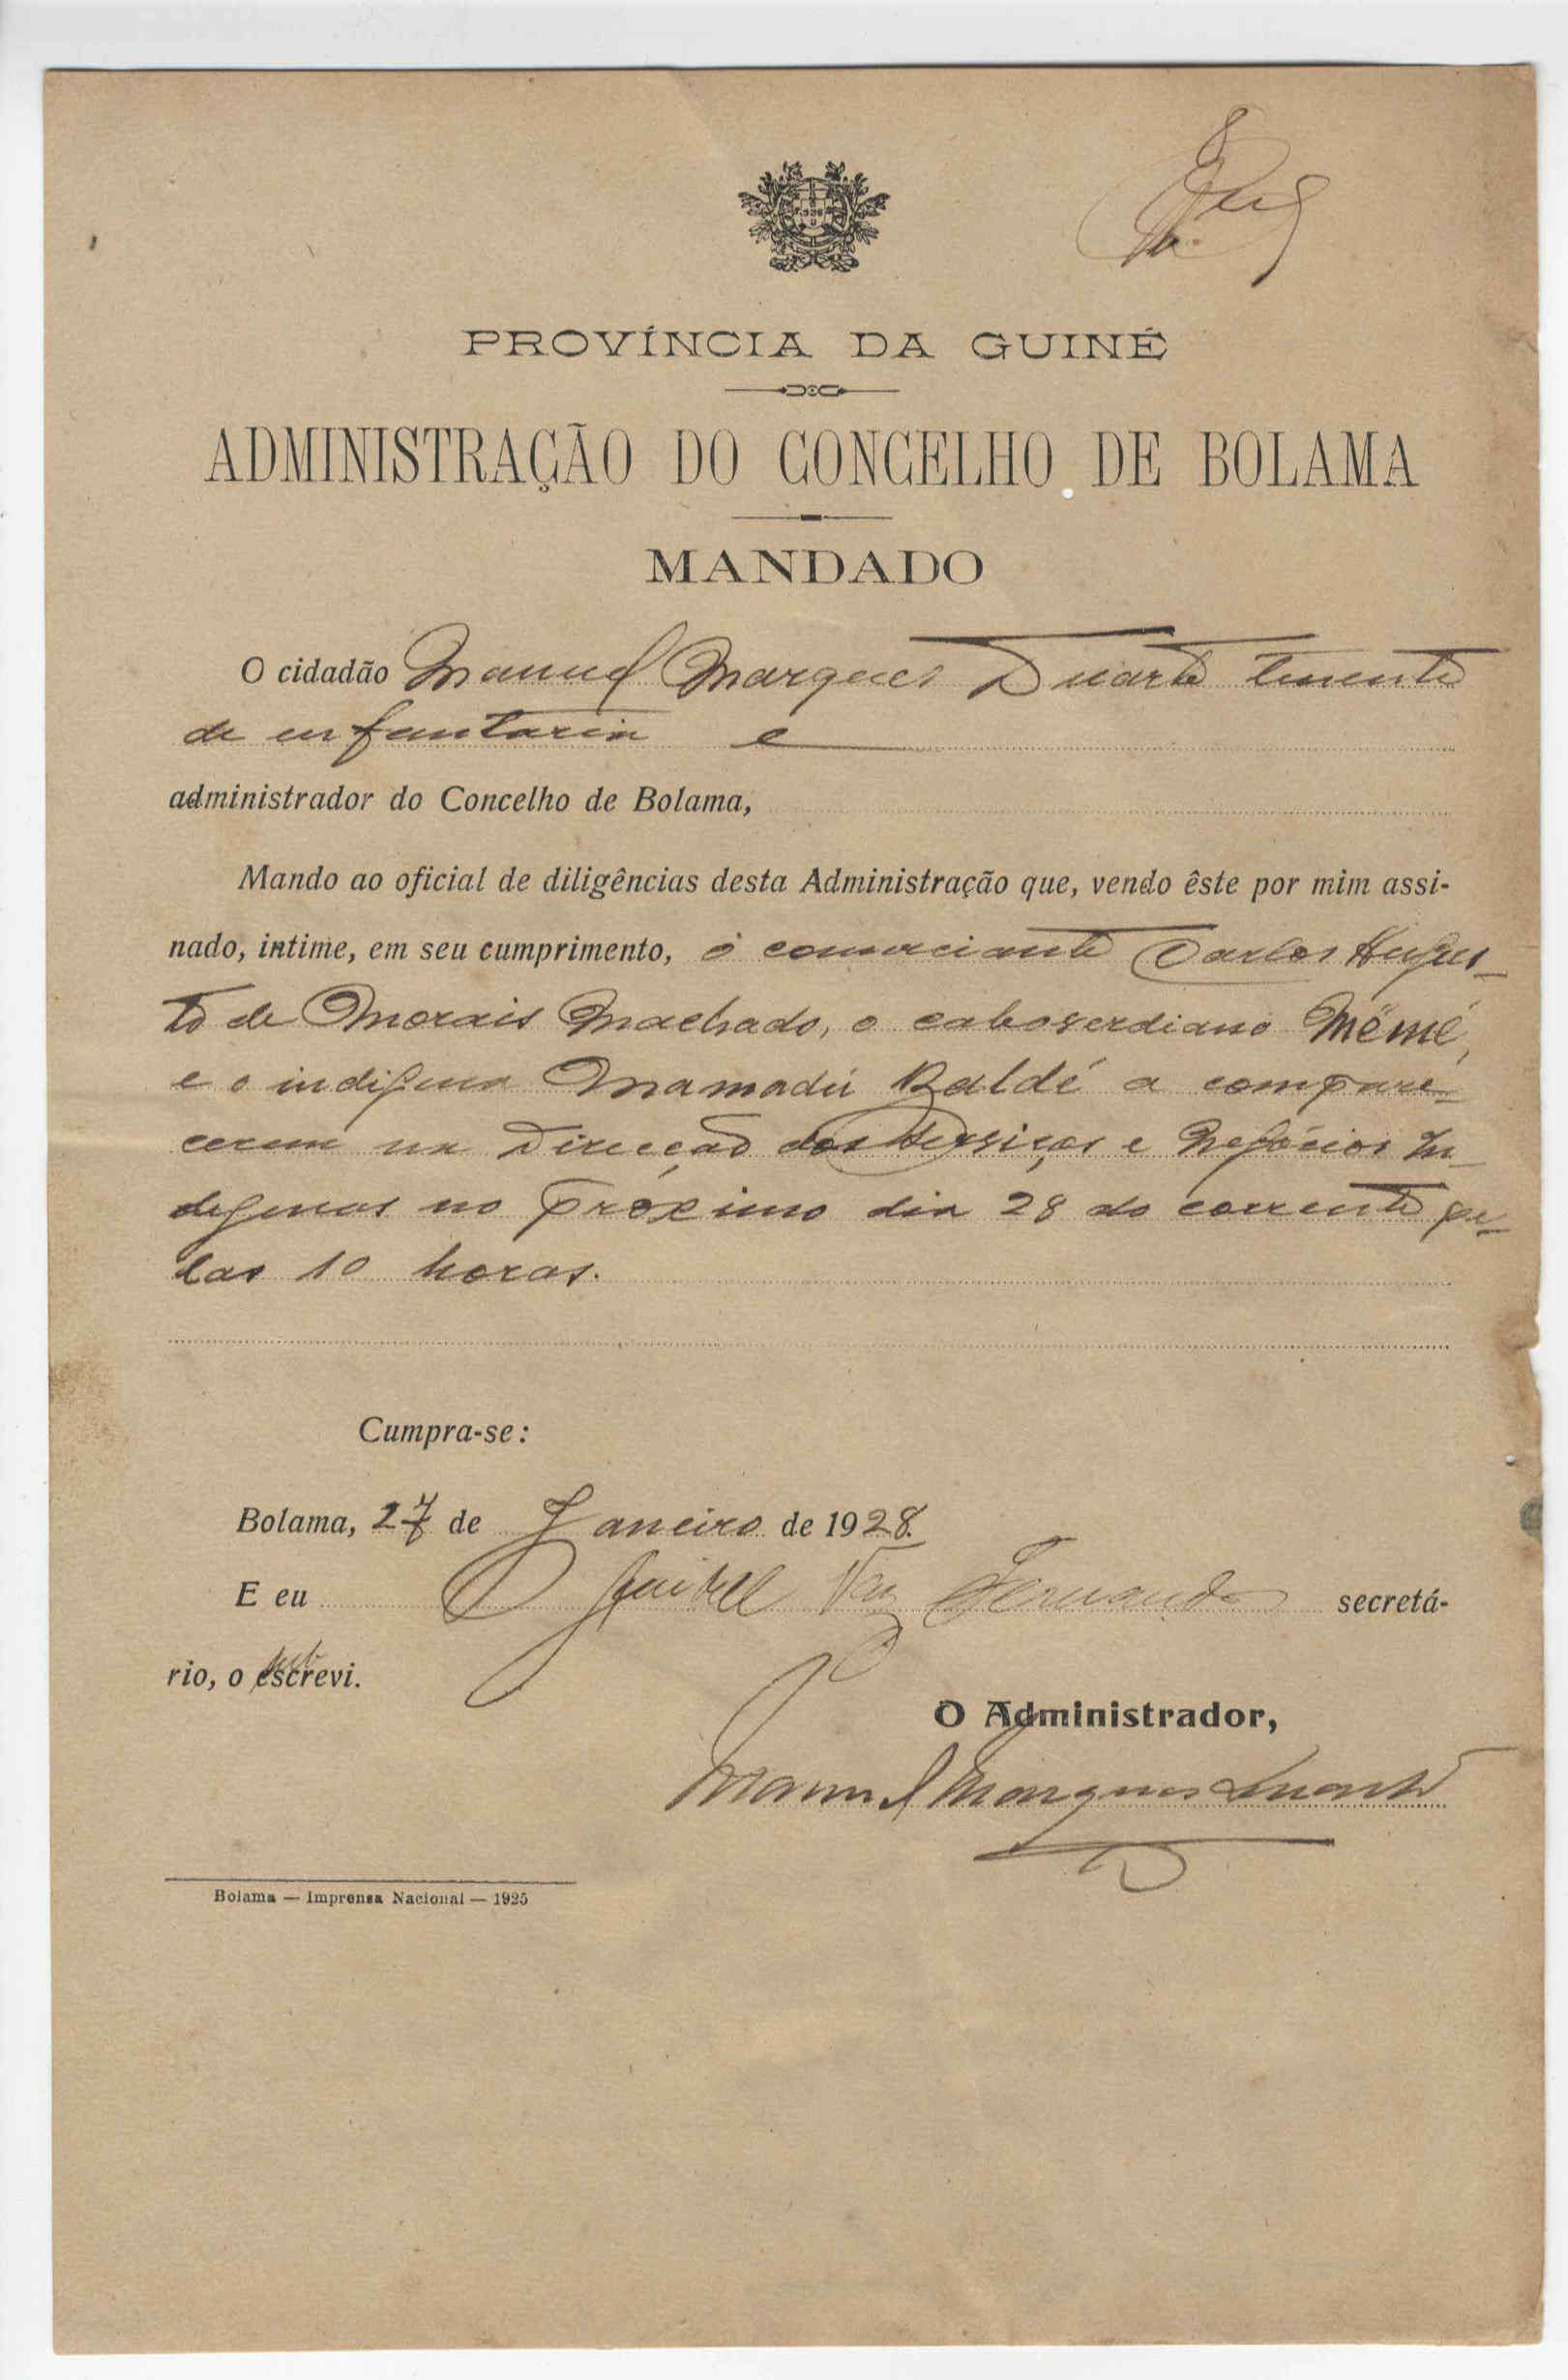 PROVÍNCIA DA GUINÉ
ADMINISTRAÇÃO DO CONCELHO DE BOLAMA
MANDADO
O cidadão Manuel Marques Duarte tenente
de infantaria e
administrador do Concelho de Bolama,
Mando ao oficial de diligências desta Administração que, vendo êste por mim assi-
nado, intime, em seu cumprimento, o comerciante Carlos Augus-
to de Morais Machado, o caboverdiano Mémé,
e o indigena Mamadú Baldé a compare-
cerem na Direcção dos Serviços e Negócios In-
digenas no próximo dia 28 do corrente pe-
las 10 horas.
Cumpra-se:
Bolama, 27 de Janeiro de 1928.
E eu Vaz Fernandes secretá-
rio, o escrevi.
O Administrador,
Manuel Marques Duarte
Bolama — Imprensa Nacional — 1925